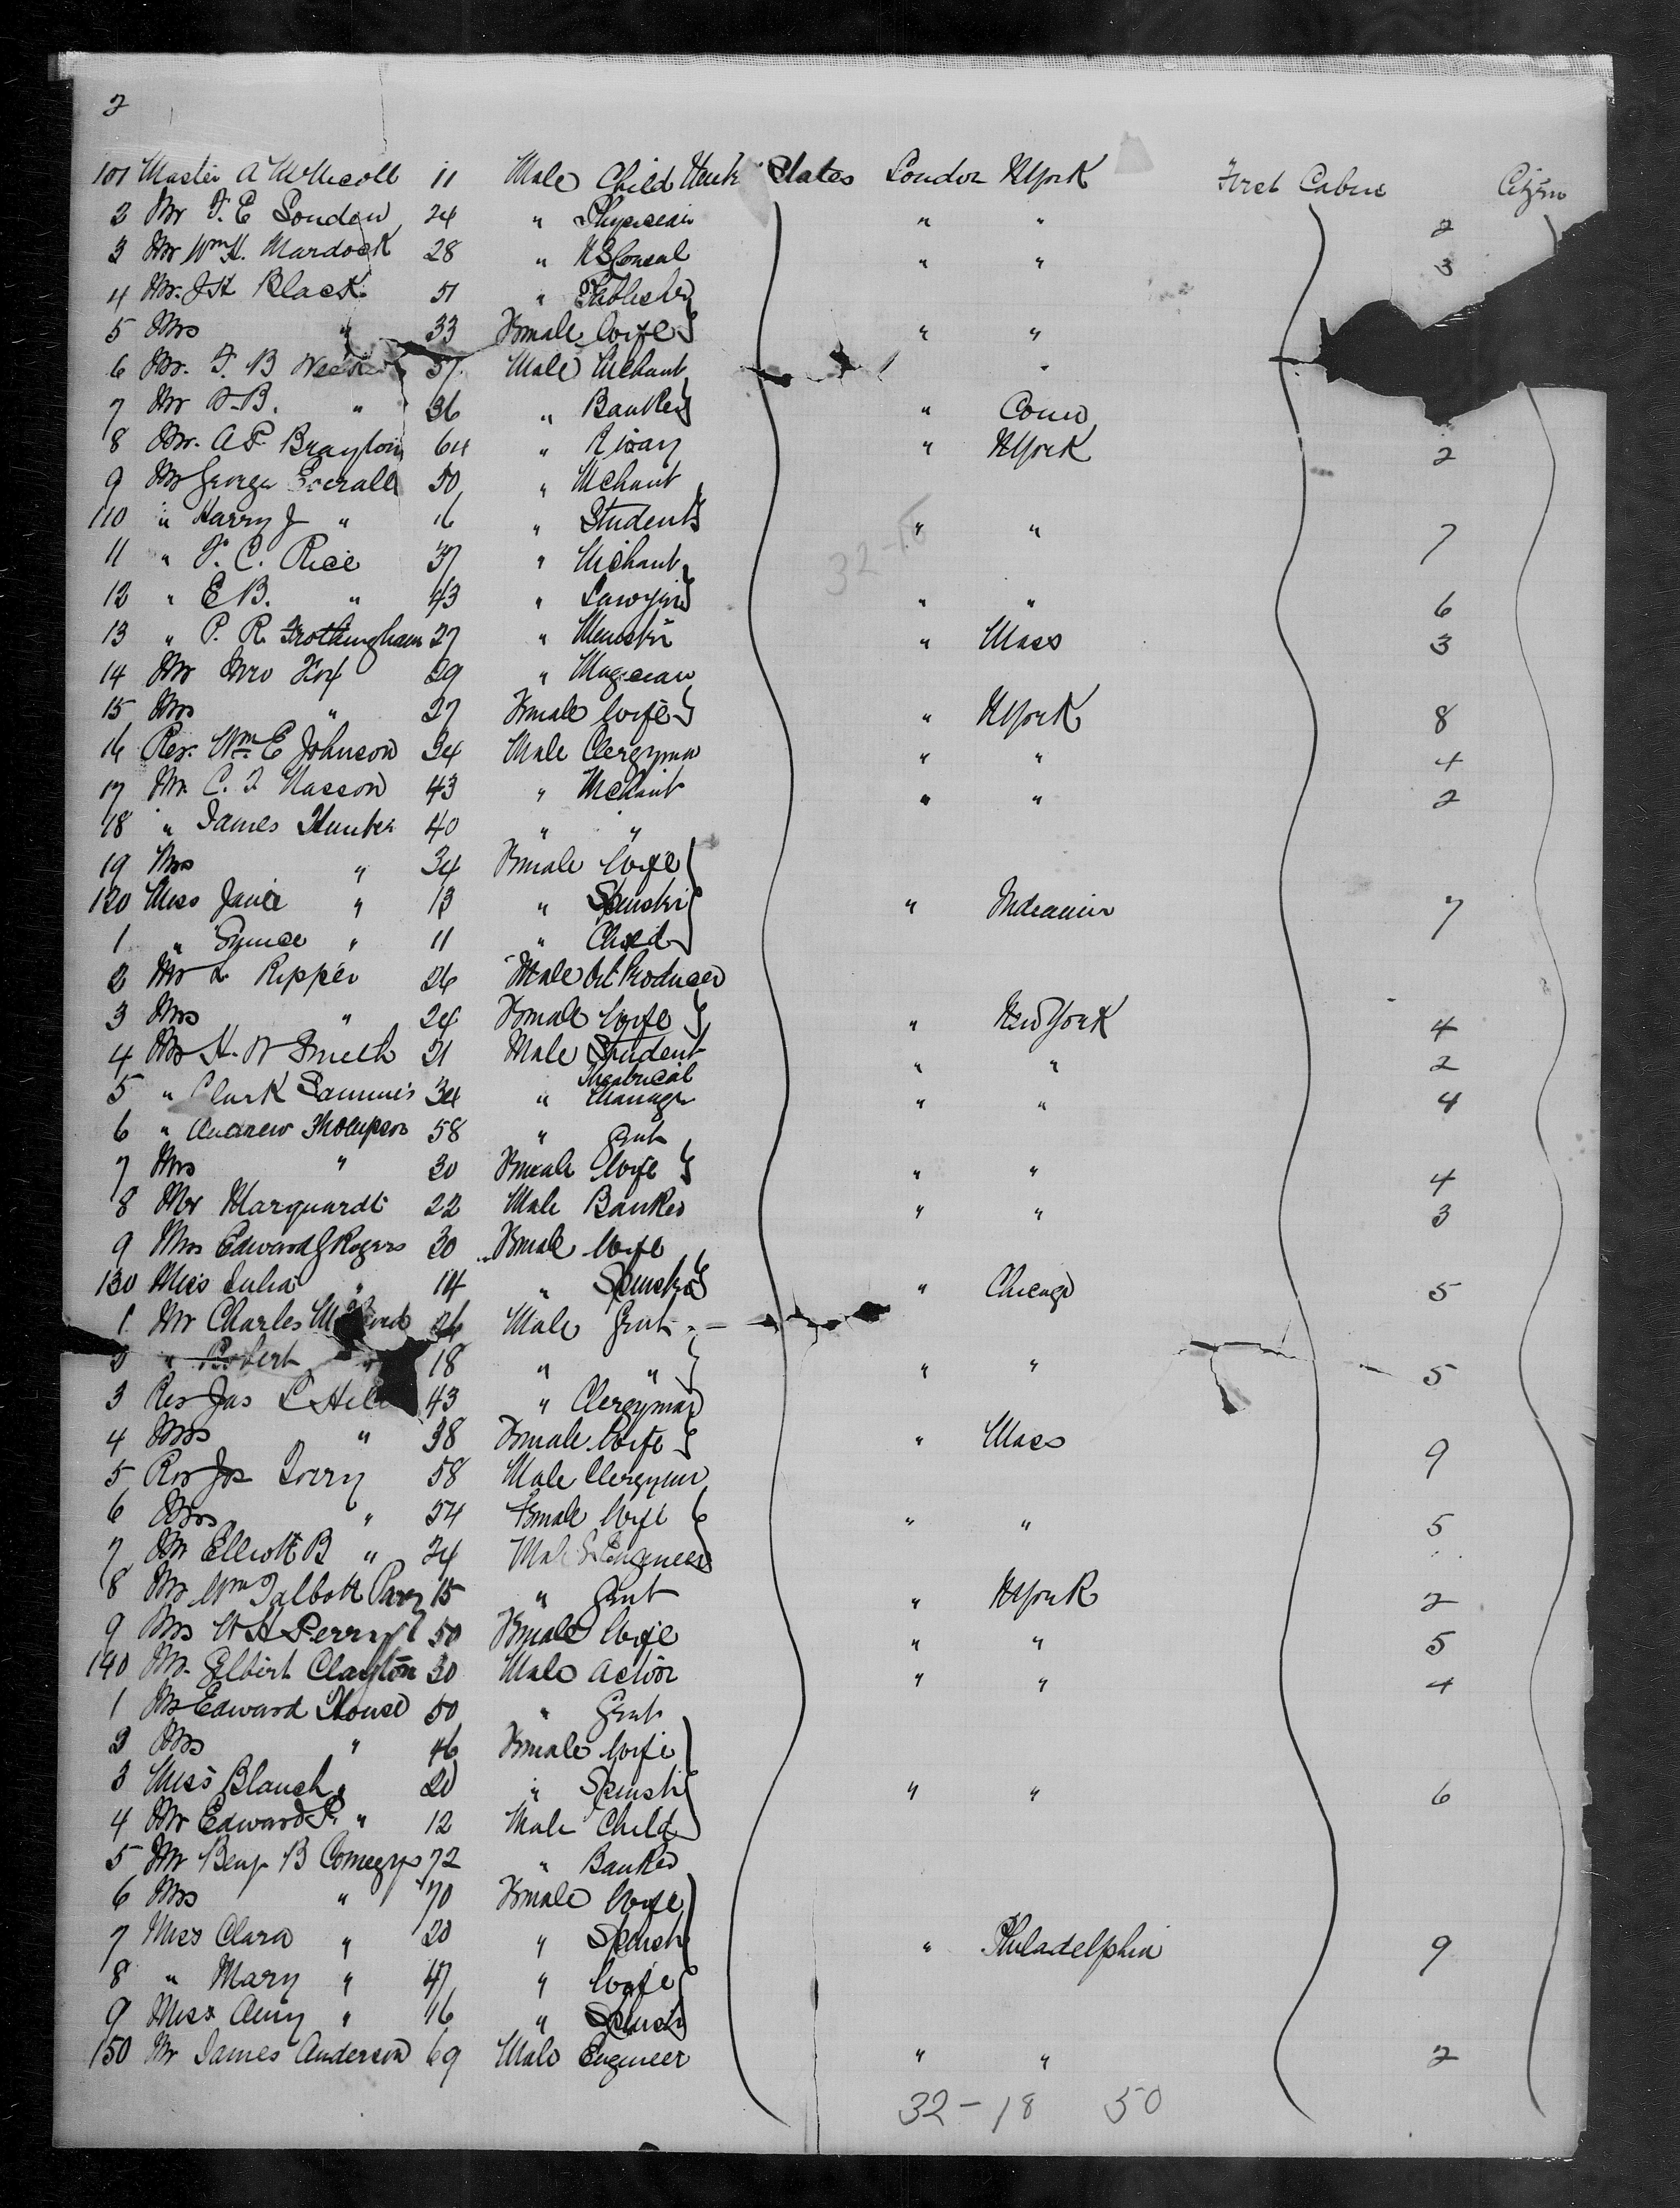 2
101 Master A McNicoll 11 Male Child States London NYork First Cabin Citizen
2 Mr F. E London 24 " Physician " " 2
3 Mr Wm H. Mardock 28 " U S Consul " " 3
4 Mr. J H Black 51 " Publisher
5 Mrs " 33 Female Wife " "
6 Mr. F. B 57 Male Mchant
7 Mr B. " 36 " Banker " Conn
8 Mr. A P. Brayton 64 " " NYork 2
9 Mr George 50 " Mchant
110 " Harry J " 16 " Student " " 7
11 " F. C. Rice 37 " Mchant
12 " E B. " 43 " Lawyer " " 6
13 " P. R. Frothingham 27 " Minister " Mass 3
14 Mr Fox 29 " Magician
15 Mrs " 27 Female Wife " NYork 8
16 Rev. Wm E Johnson 34 Male Clergyman " " 4
17 Mr. C. F. Nasson 43 " Mchant " " 2
18 " James Hunter 40 " "
19 Mrs " 34 Female Wife
120 Miss Janie " 13 " Spinster " 7
1 " " 11 " Child
2 Mr L Ripper 26 Male Producer
3 Mrs " 24 Female Wife " New York 4
4 Mr H. W Smith 21 Male Student " " 2
5 " Clark Sammis 34 " Theatrical Manager " " 4
6 " Andrew Thompson 58 " Gent
7 Mrs " 30 Female Wife " " 4
8 Mr Marquardt 22 Male Banker " " 3
9 Mrs Edward G Rogers 30 Female Wife
130 Miss Julia " 14 " Spinster " Chicago 5
1 Mr Charles 26 Male Gent
2 " Robert 18 " " " " 5
3 Rev Jas L Hill 43 " Clergyman
4 Mrs " 38 Female Wife " Mass 9
5 Rev Jos Torry 58 Male Clergyman
6 Mrs " 54 Female Wife " " 5
7 Mr Elliott B " 24 Male Engineer
8 Mr Wm Talbott 15 " Gent " NYork 2
9 Mrs W H Perry 50 Female Wife " " 5
140 Mr. Elbert Clayton 30 Male Actor " " 4
1 Mr Edward House 50 " Gent
2 Mrs " 46 Female Wife
3 Miss Blanch " 20 " Spinster " " 6
4 Mr Edward P. " 12 Male Child
5 Mr Benj. B Comegys 72 " Banker
6 Mrs " 70 Female Wife
7 Miss Clara " 20 " Spinster " Philadelphia 9
8 " Mary " 47 " Wife
9 Miss Amy " 16 " Spinster
150 Mr James Anderson 69 Male Engineer " " 2
32-18 50